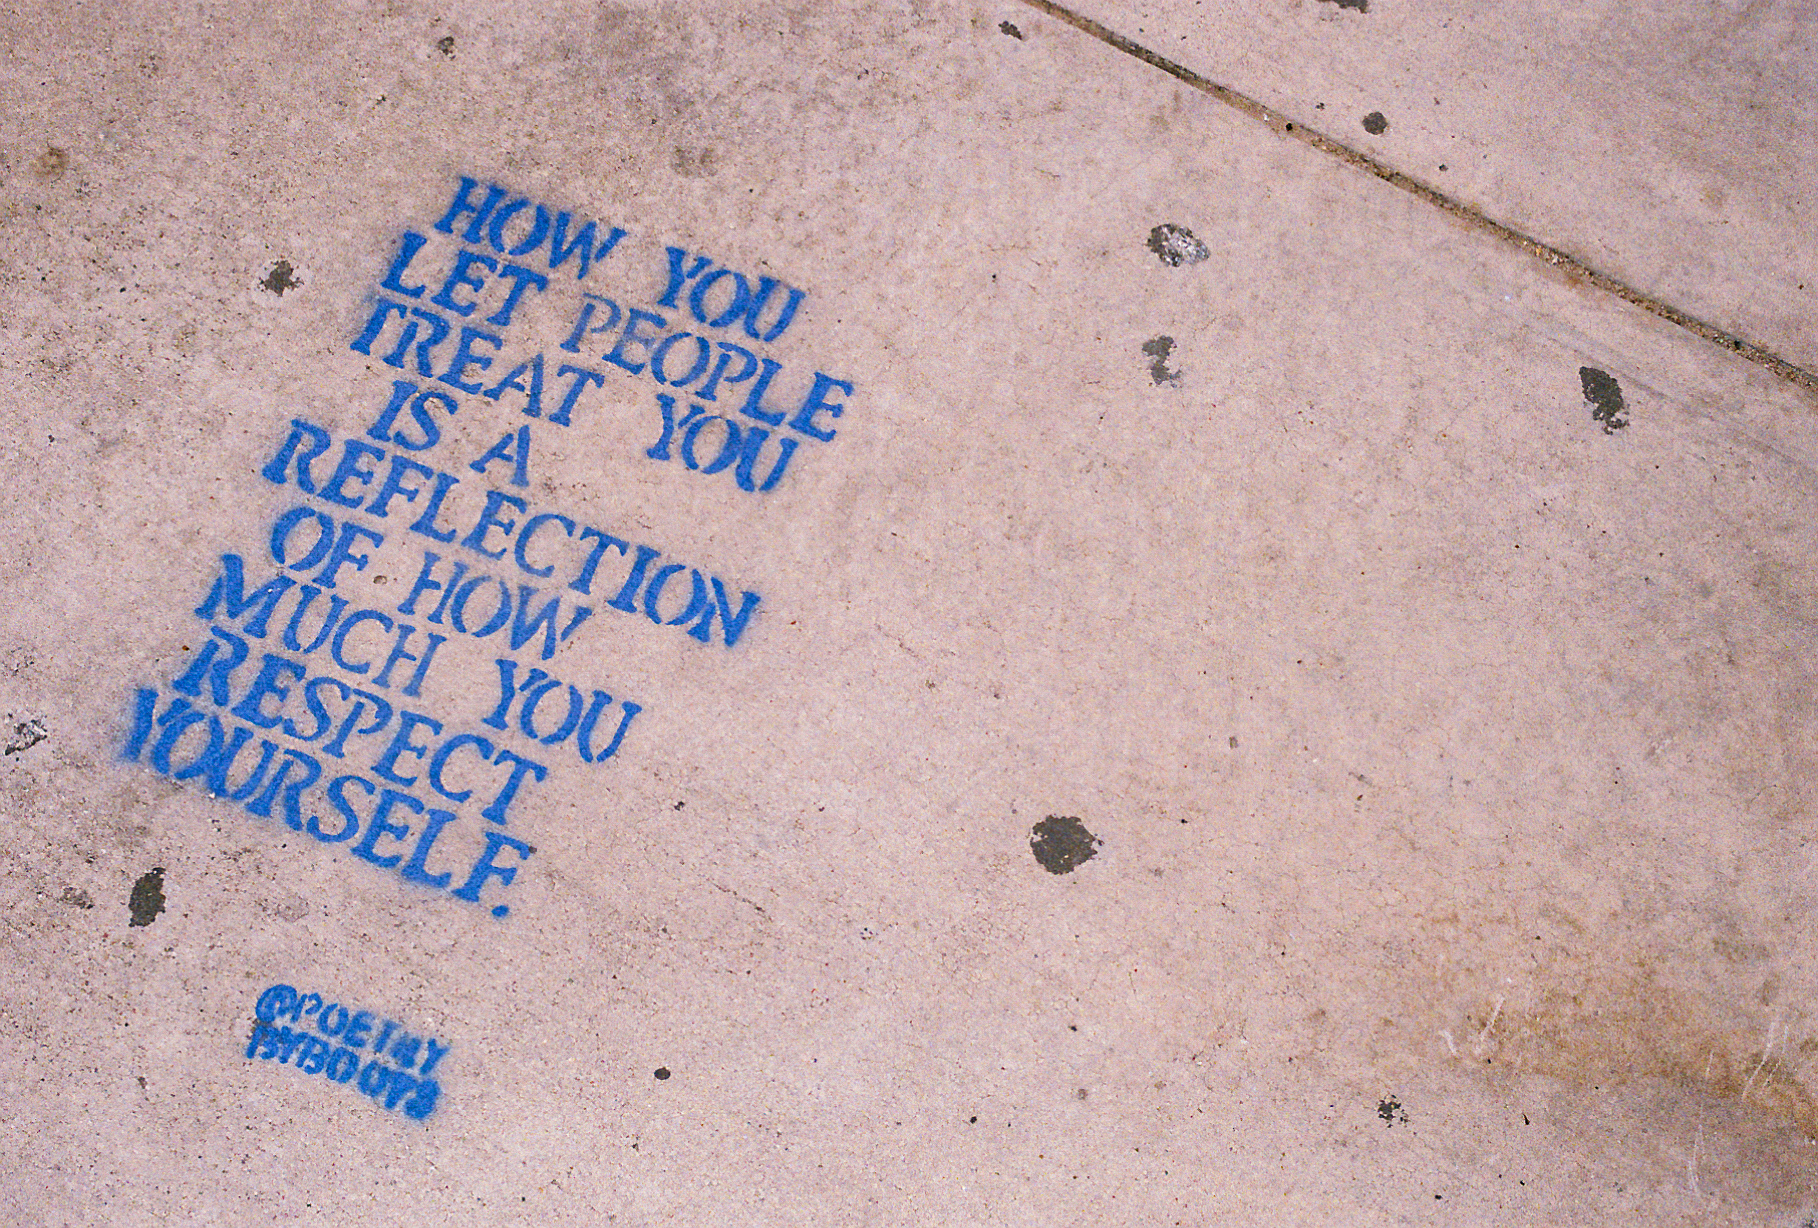 HOW YOU
LET PEOPLE
TREAT YOU
IS A
REFLECTION
OF HOW
MUCH YOU
RESPECT
YOURSELF.
@POETRY